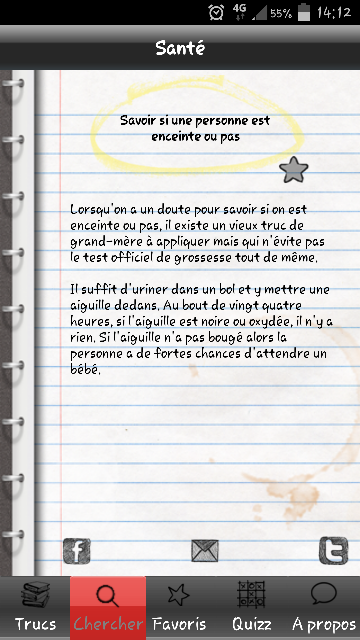 4G 55% 14:12
Santé
Savoir si une personne est
enceinte ou pas
Lorsqu'on a un doute pour savoir si on est
enceinte ou pas, il existe un vieux truc de
grand-mère à appliquer mais qui n'évite pas
le test officiel de grossesse tout de même.
Il suffit d'uriner dans un bol et y mettre une
aiguille dedans. Au bout de vingt quatre
heures, si l'aiguille est noire ou oxydée, il n'y a
rien. Si l'aiguille n'a pas bougé alors la
personne a de fortes chances d'attendre un
bébé.
f t
Trucs Chercher Favoris Quizz A propos